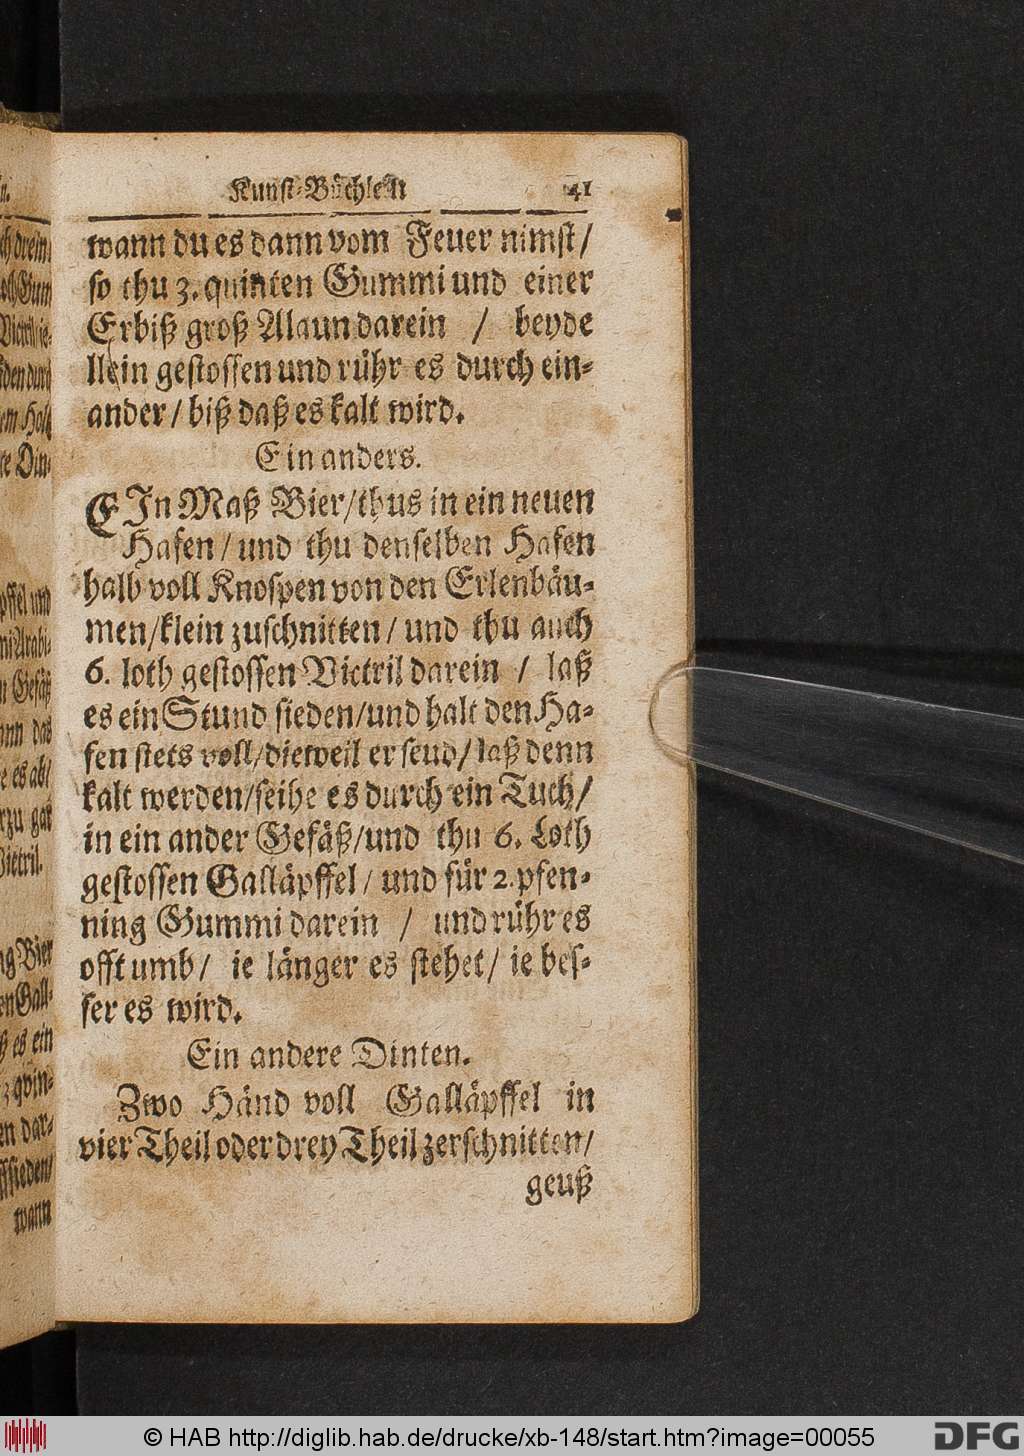 Kunst-Büchlein 41
wann du es dann vom Feuer nimst/
so thu 3. quinten Gummi und einer
Erbiß groß Alaun darein / beyde
llein gestossen und rühr es durch ein-
ander / biß daß es kalt wird.
Ein anders.
EIn Maß Bier/thus in ein neuen
Hafen / und thu denselben Hafen
halb voll Knospen von den Erlenbäu-
men/klein zuschnitten / und thu auch
6. loth gestossen Victril darein / laß
es ein Stund sieden/und halt den Ha-
fen stets voll/dieweil er seud/laß denn
kalt werden/seihe es durch ein Tuch/
in ein ander Gefäß/und thu 6. Loth
gestossen Galläpffel / und für 2. pfen-
ning Gummi darein / und rühr es
offt umb / ie länger es stehet / ie bes-
ser es wird.
Ein andere Dinten.
Zwo Händ voll Galläpffel in
vier Theil oder drey Theil zerschnitten/
geuß
© HAB http://diglib.hab.de/drucke/xb-148/start.htm?image=00055
DFG